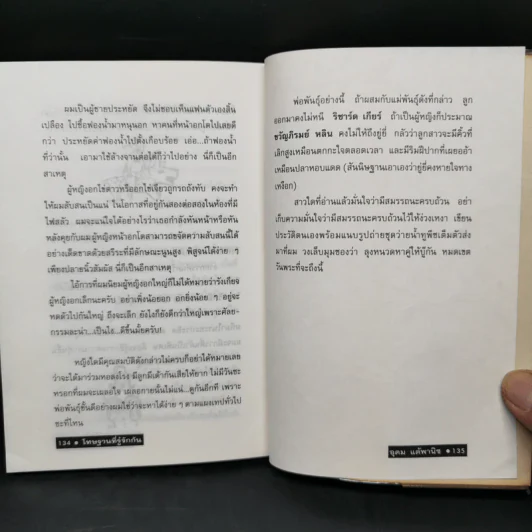 ผมเป็นผู้ชายประหยัด จึงไม่ชอบเห็นแฟนตัวเองสิ้น
เปลือง ไปซื้อฟองน้ำมาหนุนอก หาคนที่หน้าอกโตไปเลยดี
กว่า ประหยัดค่าฟองน้ำไปตั้งเกือบร้อย เอ่อ...ถ้าฟองน้ำ
ที่ว่านั้น เอามาใช้ล้างจานต่อได้ก็ว่าไปอย่าง นี่ก็เป็นอีก
สาเหตุ
ผู้หญิงอกไข่ดาวหรืออกไข่เจียวถูกรถถังทับ คงจะทำ
ให้ผมสับสนเป็นแน่ ในโอกาสที่อยู่กันสองต่อสองในห้องที่มี
ไฟสลัว ผมจะแน่ใจได้อย่างไรว่าเธอกำลังหันหน้าหรือหัน
หลังคุยกับผม ผู้หญิงหน้าอกโตสามารถขจัดความสับสนนี้ได้
อย่างเด็ดขาดด้วยสรีระที่มีลักษณะนูนสูง พิสูจน์ได้ง่าย ๆ
เพียงปลายนิ้วสัมผัส นี่ก็เป็นอีกสาเหตุ
ไอ้การที่ผมนิยมผู้หญิงอกใหญ่ก็ไม่ได้หมายว่ารังเกียจ
ผู้หญิงอกเล็กนะครับ อย่าเพิ่งน้อยอก อกยิ่งน้อย ๆ อยู่จะ
หดตัวไปกันใหญ่ ถึงจะเล็ก ยังไงก็ยังดีกว่าใหญ่เพราะศัลย-
กรรมละน่า...เป็นไง...ดีขึ้นมั้ยครับ!
หญิงใดมีคุณสมบัติดังกล่าวไม่ครบก็อย่าได้หมายเลย
ว่าจะได้มาร่วมทอดลงโรง มีลูกมีเต้ากันเสียให้ยาก ไม่มีวันซะ
หรอกที่ผมจะเผลอใจ เผลอกายนั้นไม่แน่...ดูกันอีกที เพราะ
พ่อพันธุ์ชั้นดีอย่างผมใช่ว่าจะหาได้ง่าย ๆ ตามแผงเทปทั่วไป
ซะที่ไหน
134 • โทษฐานที่รู้จักกัน
พ่อพันธุ์อย่างนี้ ถ้าผสมกับแม่พันธุ์ดังที่กล่าว ลูก
ออกมาคงไม่หนี ริชาร์ด เกียร์ ถ้าเป็นผู้หญิงก็ประมาณ
ขวัญภิรมย์ หลิน คงไม่ให้ถึงยู่ยี่ กลัวว่าลูกสาวจะมีตั้วที่
เล็กสูงเหมือนตกกะใจตลอดเวลา และมีริมฝีปากที่เผยออ้า
เหมือนปลาหอบแดด (สันนิษฐานเอาเองว่ายู่ยี่คงหายใจทาง
เหงือก)
สาวใดที่อ่านแล้วมั่นใจว่ามีสมรรถนะครบถ้วน อย่า
เก็บความมั่นใจว่ามีสมรรถนะครบถ้วนไว้ให้ง่วงเหงา เขียน
ประวัติตนเองพร้อมแนบรูปถ่ายชุดว่ายน้ำทูพีซเต็มตัวส่ง
มาที่ผม วงเล็บมุมซองว่า ลุงหนวดหาคู่ให้บู๊กัน หมดเขต
วันพระที่จะถึงนี้
อุดม แต้พานิช • 135